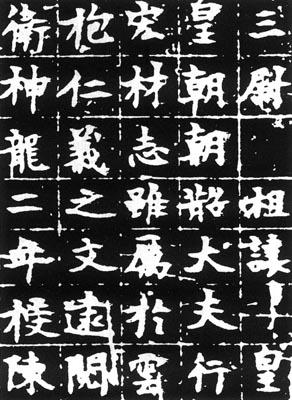 三尉祖皇
皇朝朝散大夫行
宏材志雖厲於雲
抱仁義之文遠閱
衛神龍二年授陳